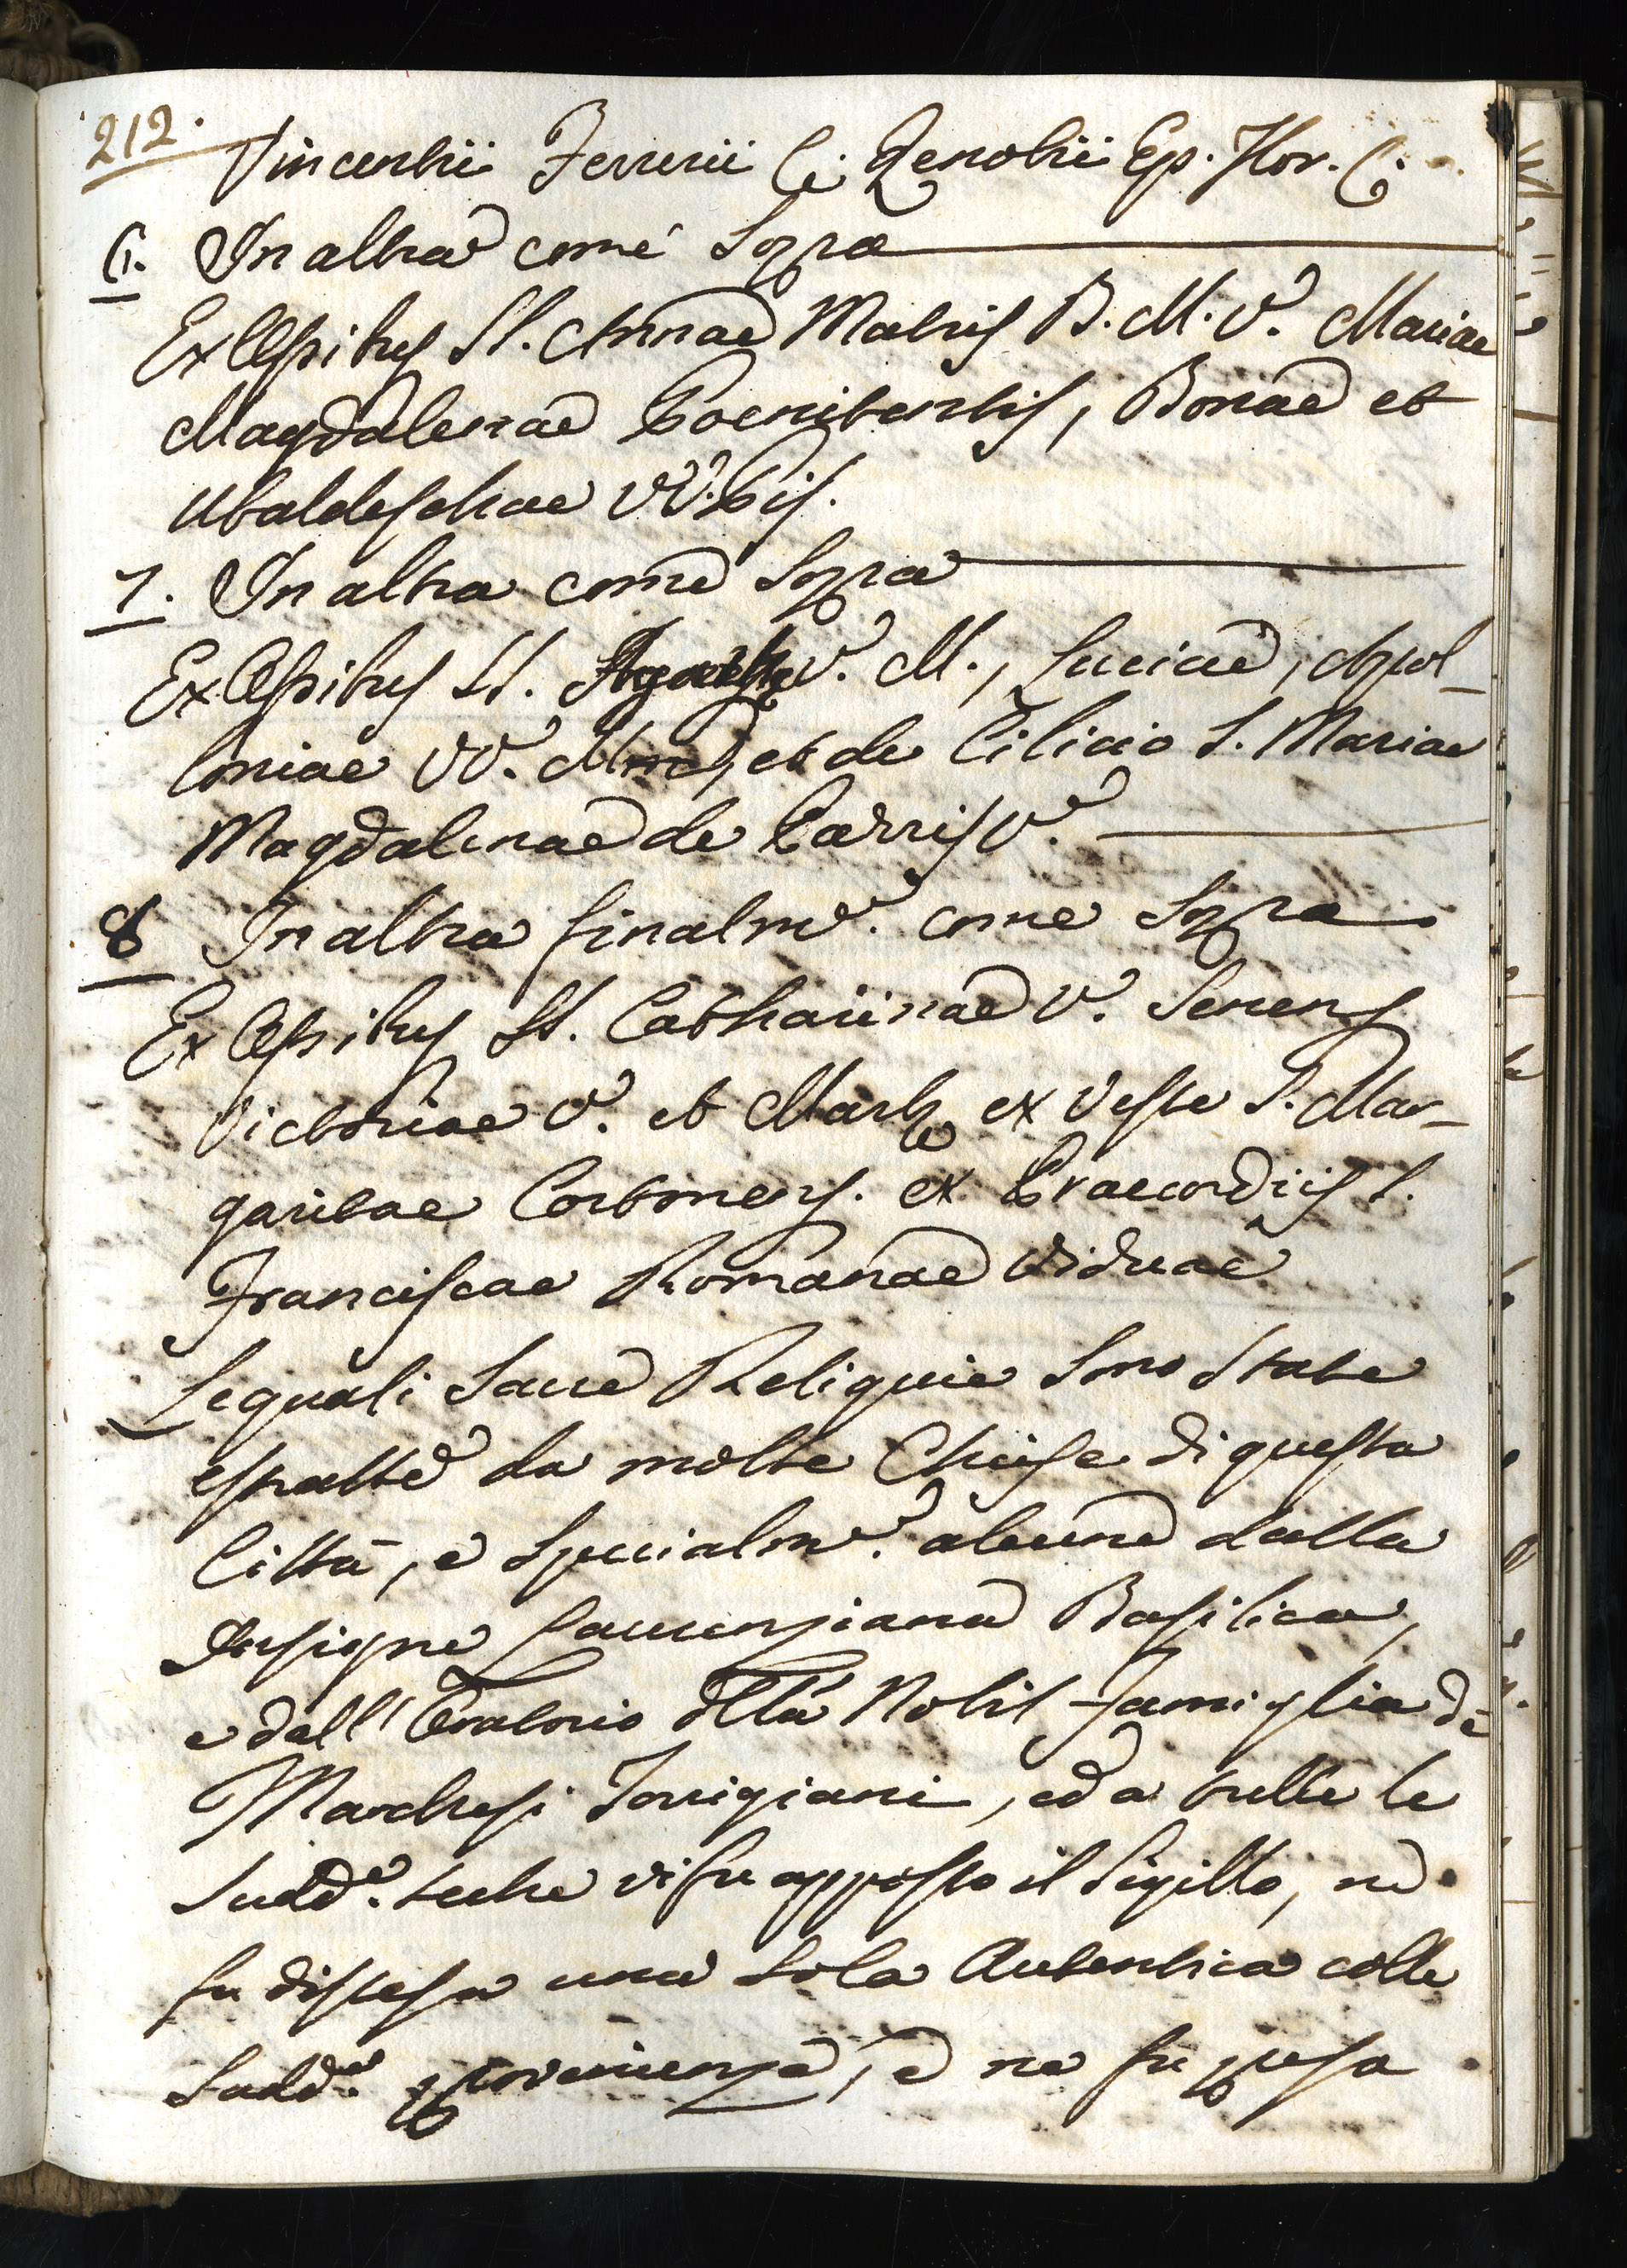 212.
Vincentii Ferrerii C. Zenobii Ep. Flor. C.
6. In altra come Sopra
Ex Ossibus SS. Annae Matris B. M. V. Mariae
Magdalenae Poenitentis, Bonae et
Ubaldeschae VV. Pis.
7. In altra come Sopra
Ex Ossibus SS. Agathae V. M., Luciae, Apol-
loniae VV. Mm, et de Cilicio S. Mariae
Magdalenae de Pazzis V.
8 In altra finalmᵉ. come Sopra
Ex Ossibus SS. Catharinae V. Senens
Victoriae V. et Mart, ex Veste S. Mar-
garitae Cortonens. ex Praecordiis S.
Franciscae Romanae Viduae
Le quali Sacre Reliquie Sono State
estratte da molte Chiese di questa
Città, e Specialmᵉ. alcune dalla
Insigne Laurenziana Basilica,
e dall'Oratorio dlla Nobil Famiglia de
Marchesi Torrigiani, ed a tutte le
Suddᵉ. teche vi fu apposto il Sigillo, ne
fu distesa una Sola Autentica colle
Sudd.ᵉ provenienze, e ne fu presa